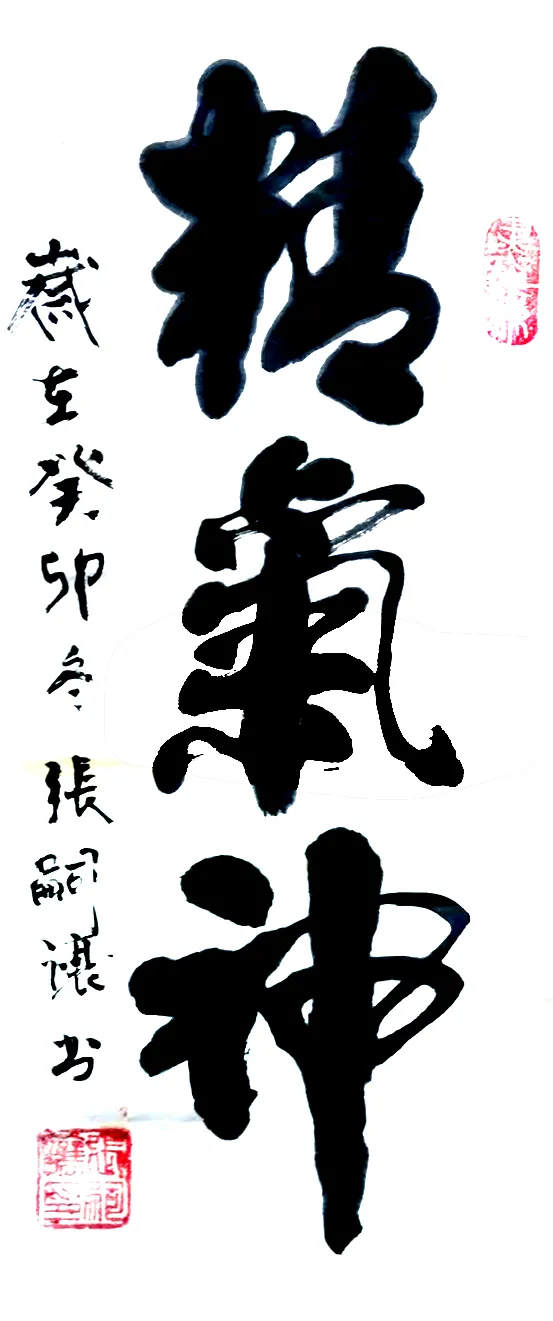 精氣神
歲在癸卯冬張嗣讓书